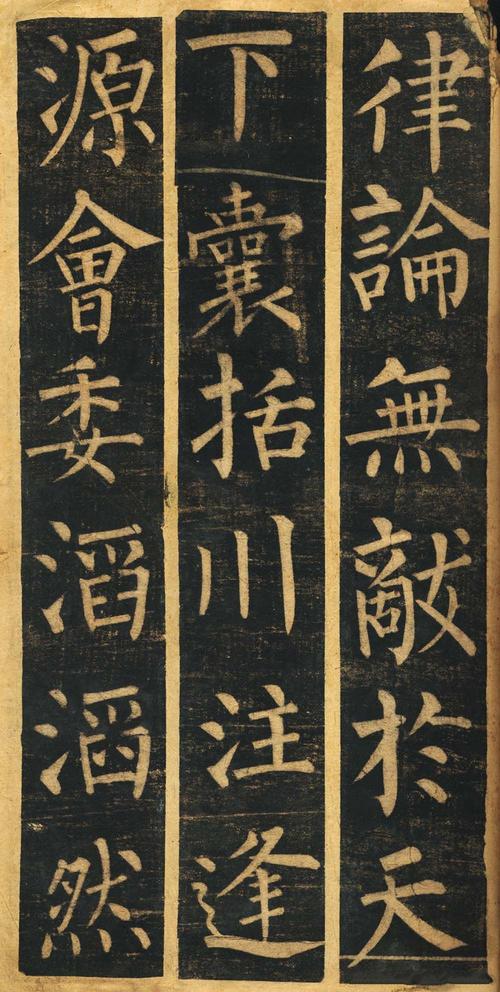 律論無敵於天
下囊括川注逢
源會委滔滔然